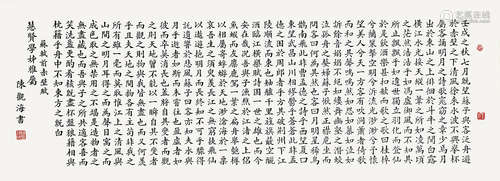 壬戌之秋七月既望蘇子與客泛舟遊
於赤壁之下清風徐來水波不興舉杯
屬客誦明月之詩歌窈窕之章少焉月
出於東山之上徘徊於斗牛之間白露
橫江水光接天縱一葦之所如凌萬頃
之茫然浩浩乎如馮虛御風而不知其
所止飄飄乎如遺世獨立羽化而登仙
於是飲酒樂甚扣舷而歌之歌曰桂棹
兮蘭槳擊空明兮泝流光渺渺兮予懷
望美人兮天一方客有吹洞簫者倚歌
而和之其聲嗚嗚然如怨如慕如泣如
訴餘音嫋嫋不絕如縷舞幽壑之潛蛟
泣孤舟之嫠婦蘇子愀然正襟危坐而
問客曰何為其然也客曰月明星稀烏
鵲南飛此非曹孟德之詩乎西望夏口
東望武昌山川相繆鬱乎蒼蒼此非孟
德之困於周郎者乎方其破荊州下江
陵順流而東也舳艫千里旌旗蔽空釃
酒臨江橫槊賦詩固一世之雄也而今
安在哉況吾與子漁樵於江渚之上侶
魚蝦而友麋鹿駕一葉之扁舟舉匏樽
以相屬寄蜉蝣於天地渺滄海之一粟
哀吾生之須臾羨長江之無窮挾飛仙
以遨遊抱明月而長終知不可乎驟得
託遺響於悲風蘇子曰客亦知夫水與
月乎逝者如斯而未嘗往也盈虛者如
彼而卒莫消長也蓋將自其變者而觀
之則天地曾不能以一瞬自其不變者
而觀之則物與我皆無盡也而又何羨
乎且夫天地之間物各有主苟非我之
所有雖一毫而莫取惟江上之清風與
山間之明月耳得之而為聲目寓之而
成色取之無禁用之不竭是造物者之
無盡藏也而吾與子之所共適客喜而
笑洗盞更酌肴核既盡杯盤狼藉相與
枕藉乎舟中不知東方之既白
蘇軾前赤壁賦
慧賢學姊雅屬
陳觀海書